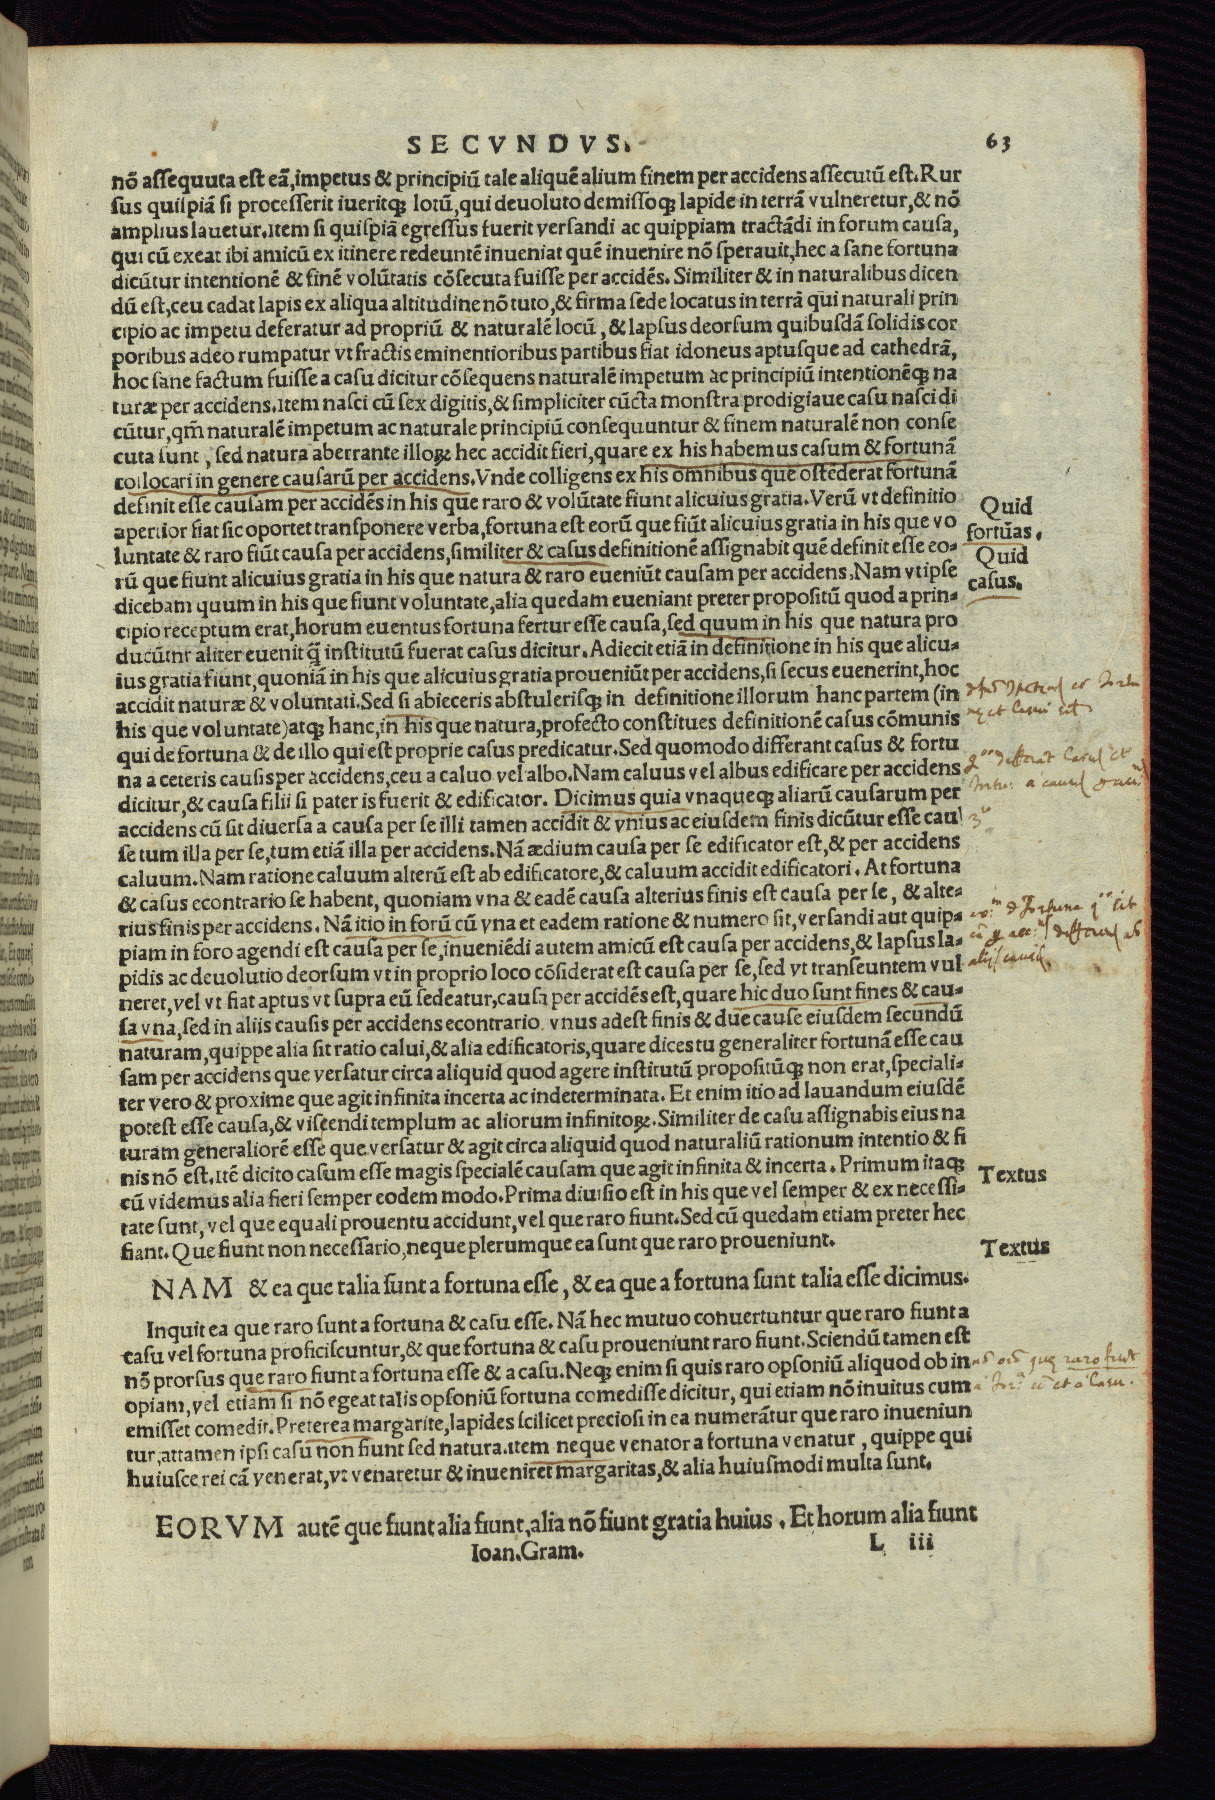 SECVNDVS.
63
nō assequuta est eā, impetus & principiū tale aliquē alium finem per accidens assecutū est. Rur
sus quispiā si processerit iueritqꝫ lotū, qui deuoluto demissoqꝫ lapide in terrā vulneretur, & nō
amplius lauetur. item si quispiā egressus fuerit versandi ac quippiam tractādi in forum causa,
qui cū exeat ibi amicū ex itinere redeuntē inueniat quē inuenire nō sperauit, hec a sane fortuna
dicūtur intentionē & finē volūtatis cōsecuta fuisse per accidēs. Similiter & in naturalibus dicen
dū est, ceu cadat lapis ex aliqua altitudine nō tuto, & firma sede locatus in terrā qui naturali prin
cipio ac impetu deferatur ad propriū & naturalē locū, & lapsus deorsum quibusdā solidis cor
poribus adeo rumpatur vt fractis eminentioribus partibus fiat idoneus aptusque ad cathedrā,
hoc sane factum fuisse a casu dicitur cōsequens naturalē impetum ac principiū intentionēqꝫ na
turæ per accidens. item nasci cū sex digitis, & simpliciter cūcta monstra prodigiaue casu nasci di
cūtur, qm̄ naturalē impetum ac naturale principiū consequuntur & finem naturalē non conse
cuta sunt, sed natura aberrante illoꝝ hec accidit fieri, quare ex his habemus casum & fortunā
collocari in genere causarū per accidens. Vnde colligens ex his omnibus que ostēderat fortunā
definit esse causam per accidēs in his que raro & volūtate fiunt alicuius gratia. Verū vt definitio
apertior fiat sic oportet transponere verba, fortuna est eorū que fiūt alicuius gratia in his que vo
luntate & raro fiūt causa per accidens, similiter & casus definitionē assignabit quē definit esse eo-
rū que fiunt alicuius gratia in his que natura & raro eueniūt causam per accidens. Nam vt ipse
dicebam quum in his que fiunt voluntate, alia quedam eueniant preter propositū quod a prin-
cipio receptum erat, horum euentus fortuna fertur esse causa, sed quum in his que natura pro
ducūtur aliter euenit q̄ institutū fuerat casus dicitur. Adiecit etiā in definitione in his que alicu-
ius gratia fiunt, quoniā in his que alicuius gratia proueniūt per accidens, si secus euenerint, hoc
accidit naturæ & voluntati. Sed si abieceris abstulerisqꝫ in definitione illorum hanc partem (in
his que voluntate) atqꝫ hanc, in his que natura, profecto constitues definitionē casus cōmunis
qui de fortuna & de illo qui est proprie casus predicatur. Sed quomodo differant casus & fortu
na a ceteris causis per accidens, ceu a caluo vel albo. Nam caluus vel albus edificare per accidens
dicitur, & causa filii si pater is fuerit & edificator. Dicimus quia vnaqueqꝫ aliarū causarum per
accidens cū sit diuersa a causa per se illi tamen accidit & vnius ac eiusdem finis dicūtur esse cau
se tum illa per se, tum etiā illa per accidens. Nā ædium causa per se edificator est, & per accidens
caluum. Nam ratione caluum alterū est ab edificatore, & caluum accidit edificatori. At fortuna
& casus econtrario se habent, quoniam vna & eadē causa alterius finis est causa per se, & alte-
rius finis per accidens. Nā itio in forū cū vna et eadem ratione & numero sit, versandi aut quip-
piam in foro agendi est causa per se, inueniēdi autem amicū est causa per accidens, & lapsus la-
pidis ac deuolutio deorsum vt in proprio loco cōsiderat est causa per se, sed vt transeuntem vul
neret, vel vt fiat aptus vt supra eū sedeatur, causa per accidēs est, quare hic duo sunt fines & cau-
sa vna, sed in aliis causis per accidens econtrario vnus adest finis & due cause eiusdem secundū
naturam, quippe alia sit ratio calui, & alia edificatoris, quare dices tu generaliter fortunā esse cau
sam per accidens que versatur circa aliquid quod agere institutū propositūqꝫ non erat, speciali-
ter vero & proxime que agit infinita incerta ac indeterminata. Et enim itio ad lauandum eiusdē
potest esse causa, & viscendi templum ac aliorum infinitoꝝ. Similiter de casu assignabis eius na
turam generaliorē esse que versatur & agit circa aliquid quod naturaliū rationum intentio & fi
nis nō est. itē dicito casum esse magis specialē causam que agit infinita & incerta. Primum itaqꝫ
cū videmus alia fieri semper eodem modo. Prima diuisio est in his que vel semper & ex necessi-
tate sunt, vel que equali prouentu accidunt, vel que raro fiunt. Sed cū quedam etiam preter hec
fiant. Que fiunt non necessario, neque plerumque ea sunt que raro proueniunt.
NAM & ea que talia sunt a fortuna esse, & ea que a fortuna sunt talia esse dicimus.
Inquit ea que raro sunt a fortuna & casu esse. Nā hec mutuo conuertuntur que raro fiunt a
casu vel fortuna proficiscuntur, & que fortuna & casu proueniunt raro fiunt. Sciendū tamen est
nō prorsus que raro fiunt a fortuna esse & a casu. Neqꝫ enim si quis raro opsoniū aliquod ob in
opiam, vel etiam si nō egeat talis opsoniū fortuna comedisse dicitur, qui etiam nō inuitus cum
emisset comedit. Preterea margarite, lapides scilicet preciosi in ea numerātur que raro inueniun
tur, attamen ipsi casu non fiunt sed natura. item neque venator a fortuna venatur, quippe qui
huiusce rei cā venerat, vt venaretur & inueniret margaritas, & alia huiusmodi multa sunt.
EORVM autē que fiunt alia fiunt, alia nō fiunt gratia huius. Et horum alia fiunt
Ioan. Gram.
L iii
Quid
fortūas.
Quid
casus.
Textus
Textus